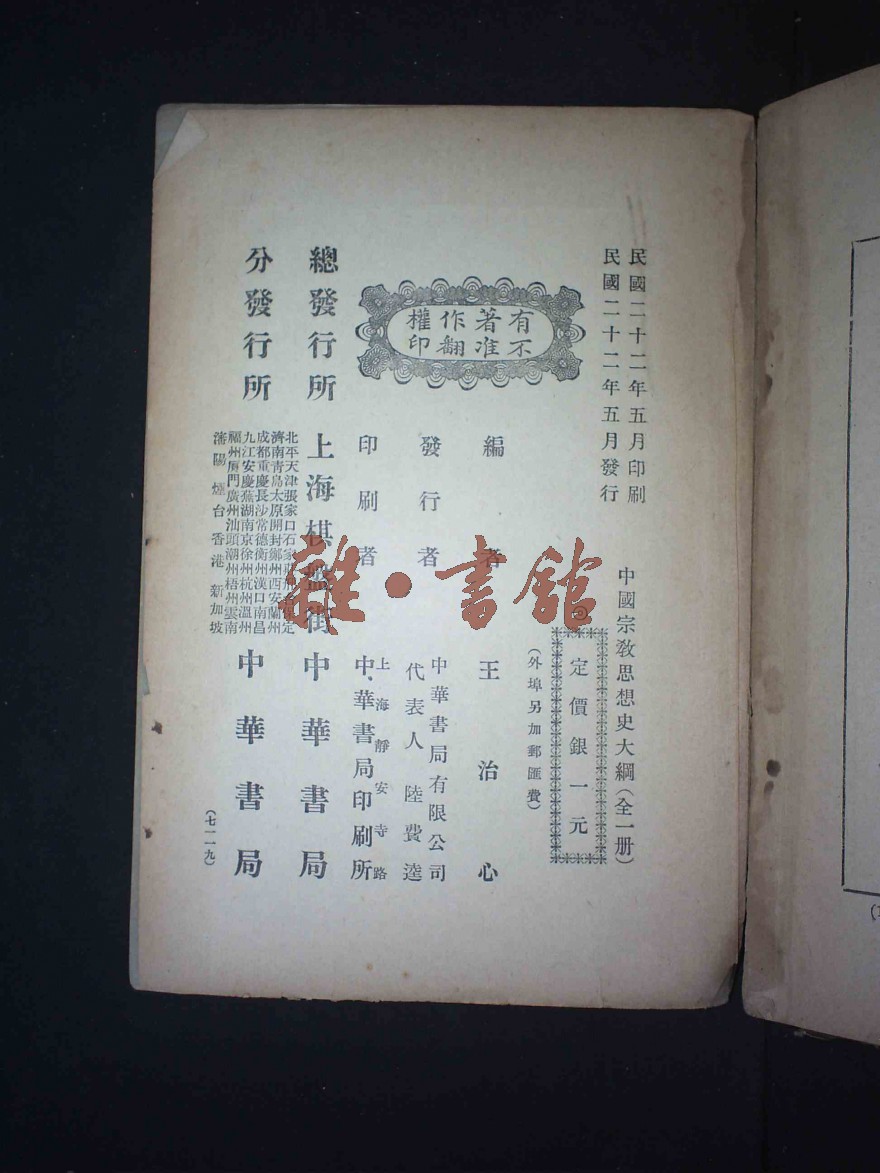 民國二十二年五月印刷
民國二十二年五月發行
中國宗教思想史大綱(全一册)
◎定價銀一元
(外埠另加郵匯費)
有著作權
不准翻印
編者 王治心
發行者 中華書局有限公司
代表人 陸費逵
印刷者 上海靜安寺路
中華書局印刷所
總發行所 上海棋盤街 中華書局
分發行所
北平天津張家口石家莊 保定
濟南青島太原開封鄭州西安蘭州
成都重慶長沙常德衡州漢口南昌
九江安慶蕪湖南京徐州杭州溫州
福州厦門廣州汕頭潮州梧州雲南
瀋陽煙台香港新加坡
中華書局
(七一一九)
雜·書館